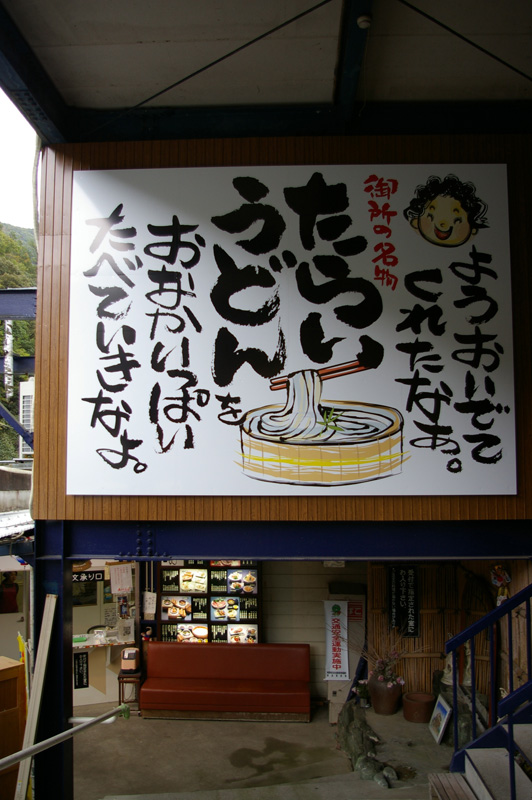 ようおいでて
くれたなあ。
御所の名物
たらい
うどんを
おなかいっぱい
たべていきなよ。
文承り口
交通安全運動実施中